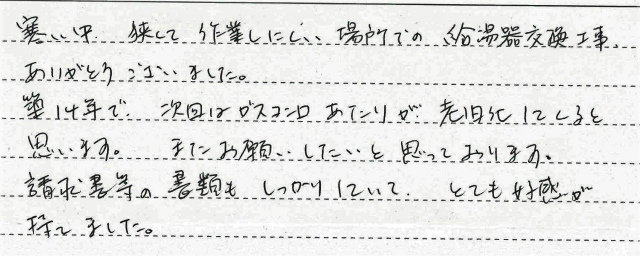 寒い中 狭くて 作業しにくい 場所での 給湯器交換工事、
ありがとう ございました。
築14年で、次回はガスコンロ あたりが 老旧化してくると
思います。 またお願いしたいと思っております。
請求書等の書類も しっかりしていて、とても好感が
持てました。